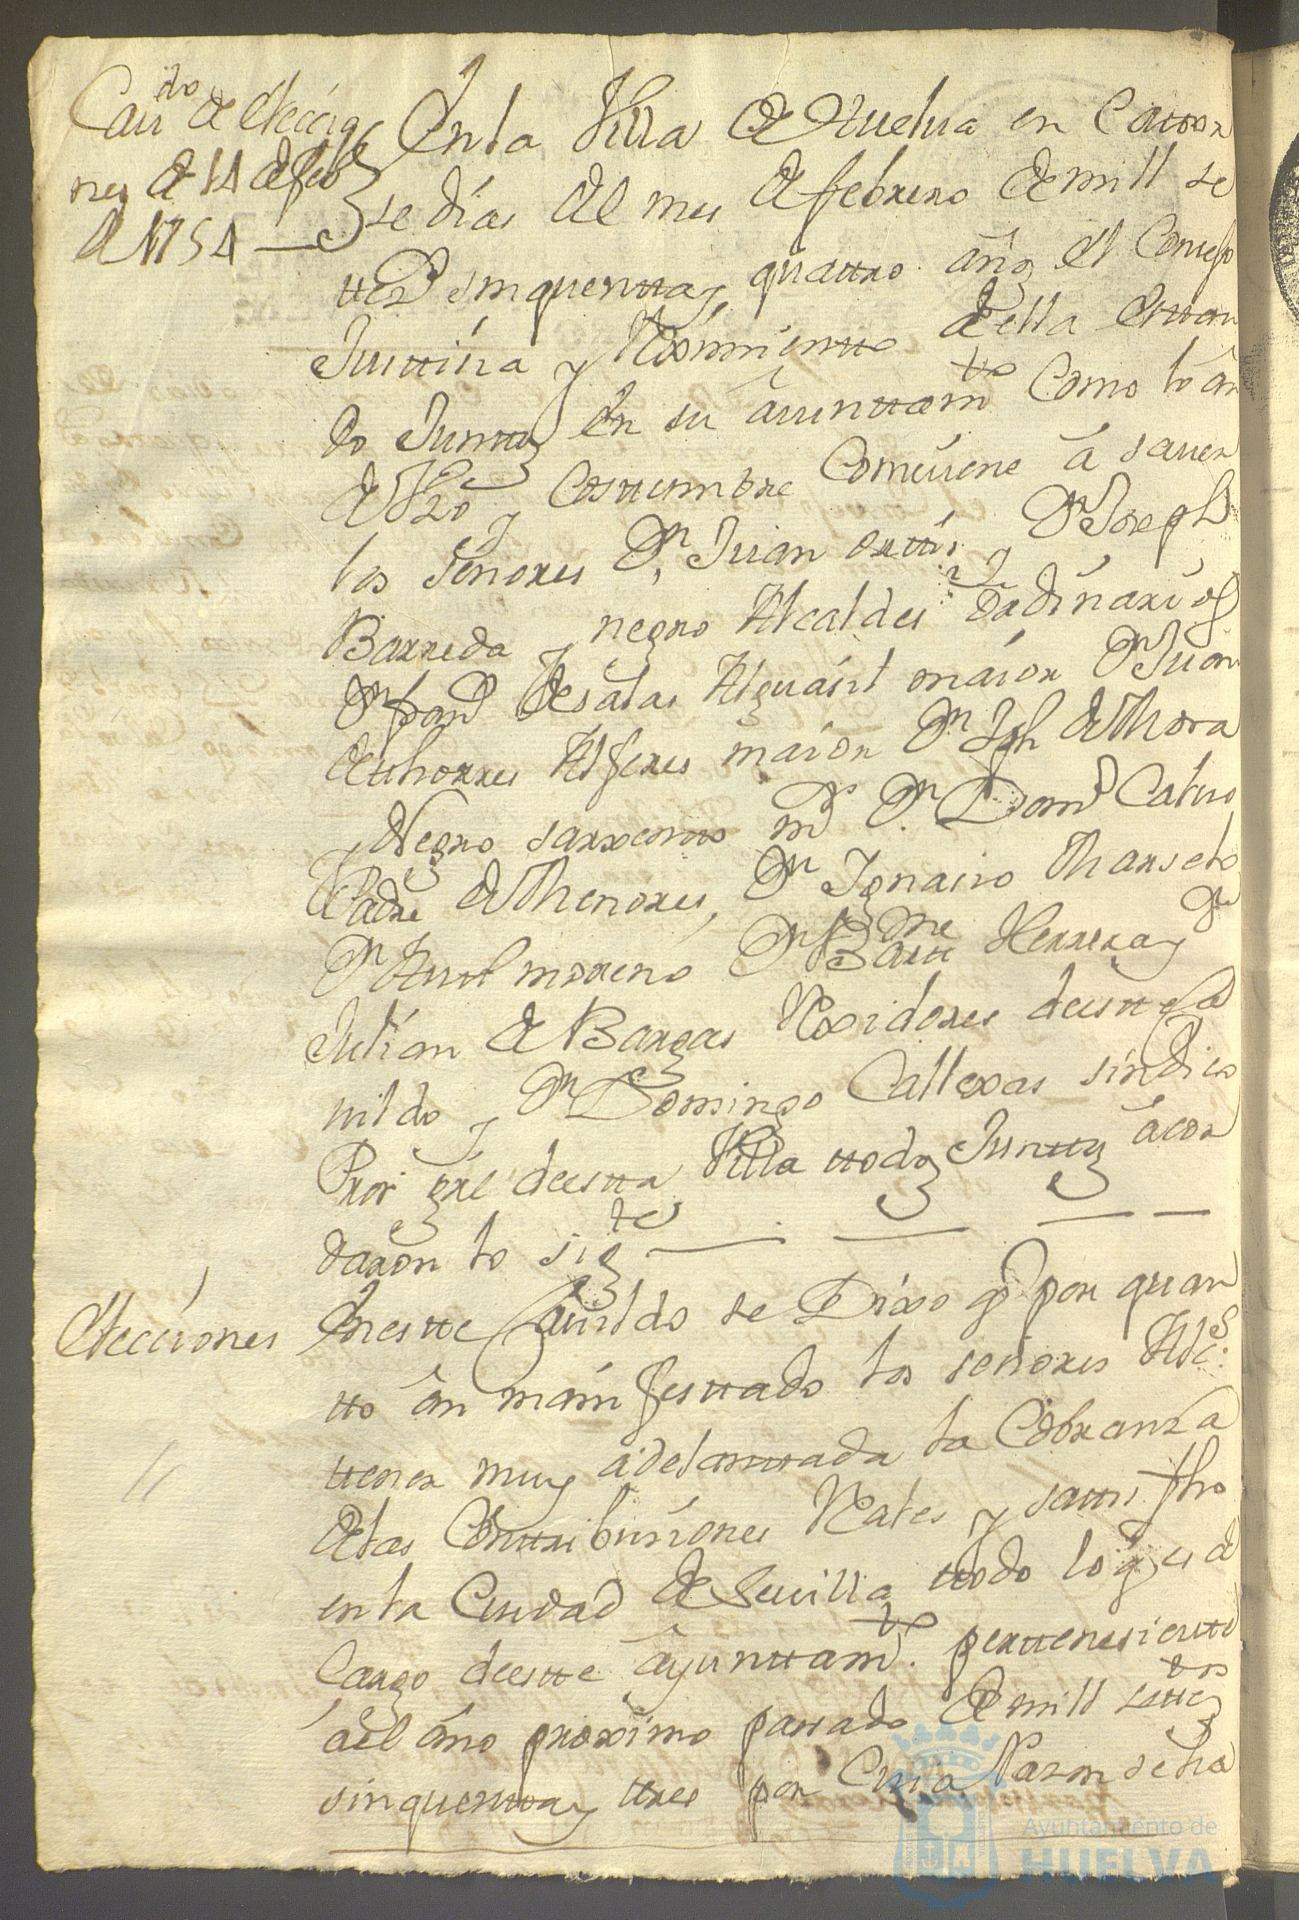 Cau.do de eleccio
nes de 14 de feb.o
de 1754
En la Villa de Huelva en Cator
se dias del mes de febrero de mill se
ttez.s sinquentta y quattro años el Consejo
Justtisia y Reximientto de ella esttan
do Junttos en su ayunttam.tto Como lo an
de Uso y Costtumbre Combiene a saver
los Señores D.n Juan orttis y D.n Joseph
Barreda y negro Alcaldes ordinarios
D.n fran.co de salas Alguasil maior D.n Juan
de tthorres Alferes maior D.n Jph de Mora
y Negro sarxentto m.or D.n Dom.o Calvo
Padre de Menores, D.n Ignasio Marselo
D.n moreno D.n Bartt.me Herrera y D.n
Julian de Bargas Rexidores deestte Ca
vildo y D.n Domingo Callexas sindico
Pror gral deestta Villa ttodos Junttos acor
daron lo sig.te
Elecciones
En estte Cavildo se Dixo q.e por quan
tto an manifesttado los señores Alc.s
ttener muy adelanttada la Cobranza
de las Conttribusiones Rales y sattisfho
en la Ciudad de Sevilla ttodo lo q.e es de
Cargo deestte ayunttam.tto perttenesientte
ael año proximo passado de mill settez.dos
sinquentta y ttres por Cuia Razon se ha
Ayuntamiento de
HUELVA